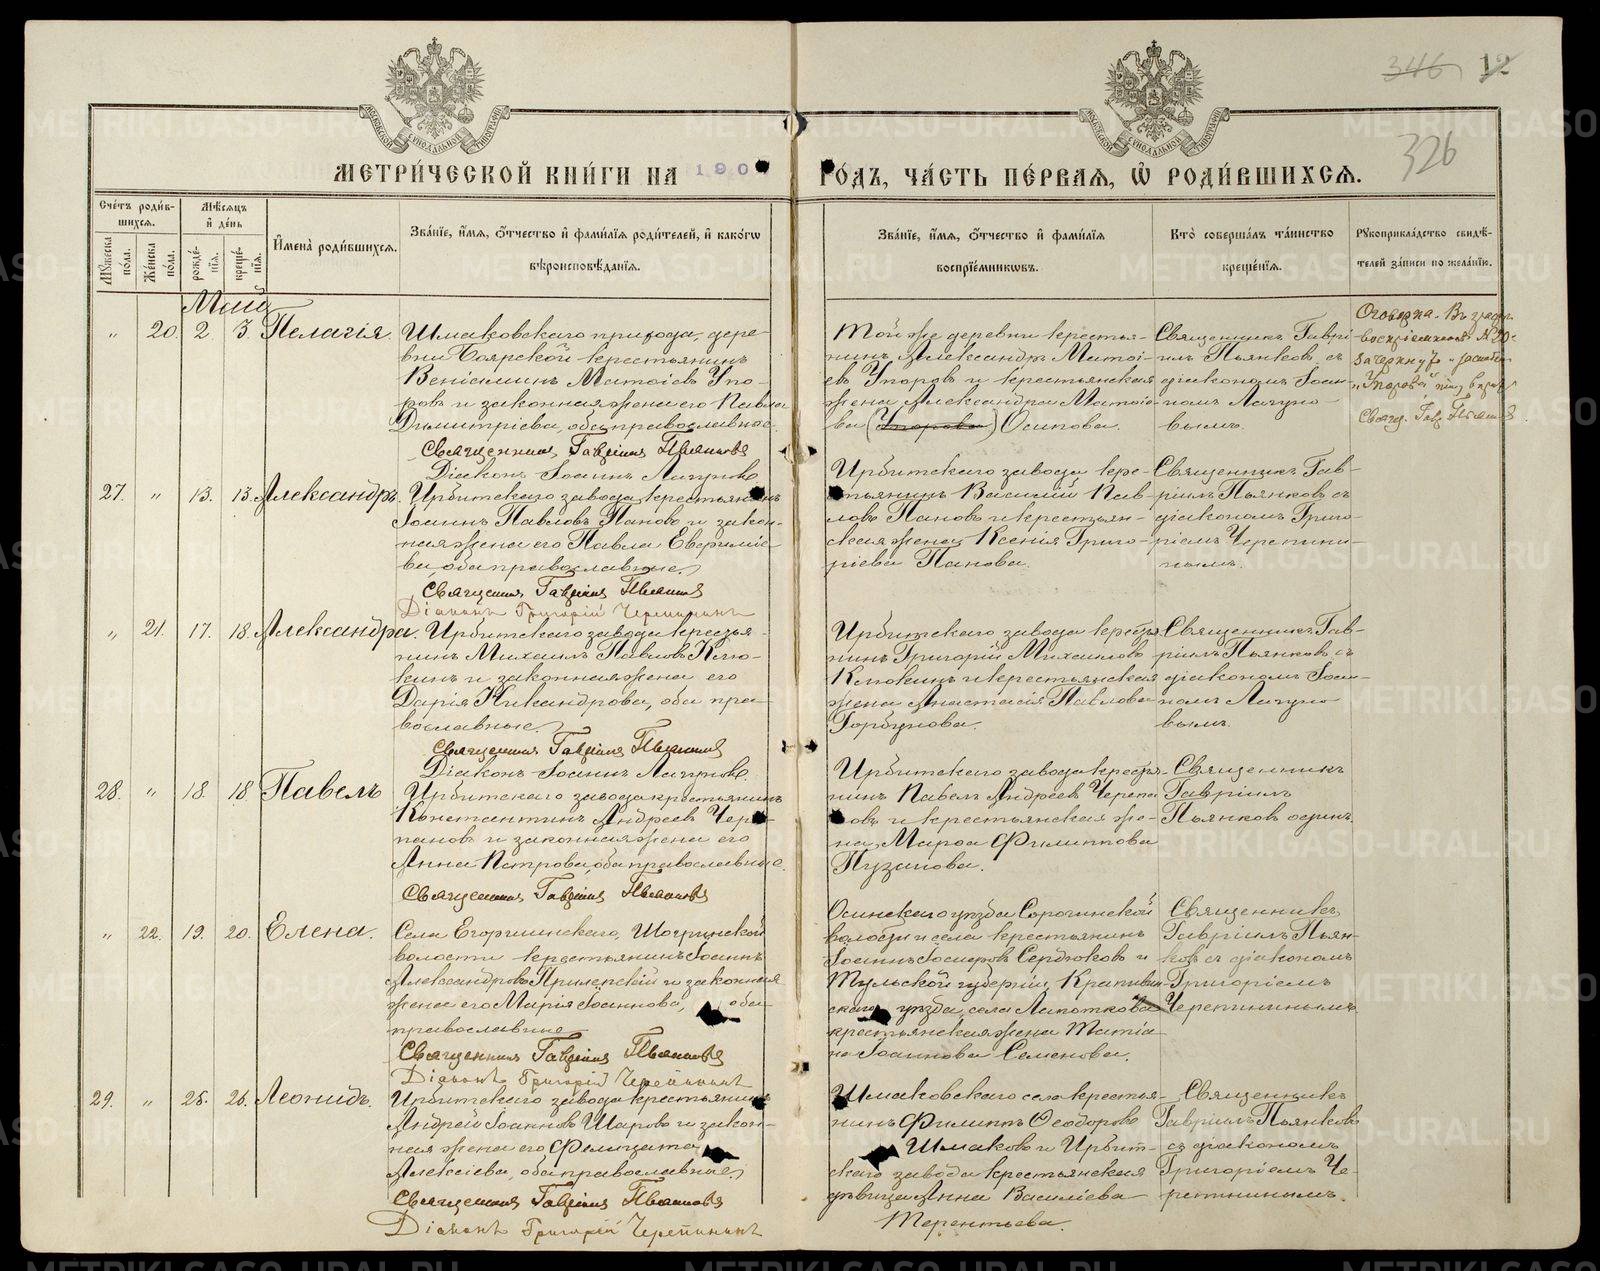 346 12
326
МЕТРИ́ЧЕСКОЙ КНИ́ГИ НА 190
РО́ДЪ, ЧА́СТЬ ПЕ́РВАЯ, Ѿ РОДИ́ВШИХСЯ.
Сче́тъ роди́в-
шихся.
Мꙋ́жеска по́ла.
Же́нска по́ла.
Мѣ́сяцъ
и҆ де́нь
рожде́-
нїя.
креще́-
нїя.
И҆мена̀ роди́вшихся.
Зва́нїе, и҆́мя, ѻ҆́тчество и҆ фами́лїя роди́телей, и҆ како́гѡ
вѣроисповѣ́данїя.
Зва́нїе, и҆́мя, ѻ҆́тчество и҆ фами́лїя
воспрїе́мникѡвъ.
Кто̀ соверша́лъ та́инство
креще́нїя.
Рꙋкоприкла́дство свидѣ́-
телей за́писи по жела́нїю.
Май
„ 20. 2 3 Пелагія.
Шмаковскаго прихода, дере-
вни Боярской крестьянинъ
Веніаминъ Матѳіевъ Упо-
ровъ и законная жена его Павла
Димитріева, оба православные.
Священникъ Гавріилъ Пьянковъ
Діаконъ Іоаннъ Лагуновъ
Той же деревни крестья-
нинъ Александръ Матѳі-
евъ Упоровъ и крестьянская
жена Александра Матѳіе-
ва (Упорова) Осипова.
Священникъ Гаврі-
илъ Пьянковъ съ
діакономъ Іоан-
номъ Лагуно-
вымъ.
Оговорка. Въ графѣ
воспріемниковъ № 20
зачеркнуто
„Упорова“
Свящ. Гавр. Пьянковъ
27. „ 13. 13. Александръ.
Ирбитскаго завода крестьянинъ
Іоаннъ Павловъ Пановъ и закон-
ная жена его Павла Евфиміе-
ва, оба православные.
Священникъ Гавріилъ Пьянковъ
Діаконъ Григорій Черепининъ
Ирбитскаго завода кре-
стьянинъ Василій Пав-
ловъ Пановъ и крестьян-
ская жена Ксенія Григо-
ріева Панова.
Священникъ Гав-
ріилъ Пьянковъ съ
діакономъ Григо-
ріемъ Черепини-
нымъ.
„ 21. 17. 18. Александра.
Ирбитскаго завода крестья-
нинъ Михаилъ Павловъ Клю-
кинъ и законная жена его
Дарія Никандрова, оба пра-
вославные.
Священникъ Гавріилъ Пьянковъ
Діаконъ Іоаннъ Лагуновъ.
Ирбитскаго завода крестья-
нинъ Григорій Михаиловъ
Клюкинъ и крестьянская
жена Анастасія Павлова
Горбунова.
Священникъ Гав-
ріилъ Пьянковъ съ
діакономъ Іоан-
номъ Лагуно-
вымъ.
28. „ 18. 18 Павелъ
Ирбитскаго завода крестьянинъ
Константинъ Андреевъ Чере-
пановъ и законная жена его
Анна Петрова, оба православные.
Священникъ Гавріилъ Пьянковъ
Ирбитскаго завода крестья-
нинъ Павелъ Андреевъ Черепа-
новъ и крестьянская же-
на, Марѳа Филиппова
Пузанова.
Священникъ
Гавріилъ
Пьянковъ одинъ.
„ 22. 19. 20. Елена.
Села Егоршинскаго, Шогринской
волости крестьянинъ Іоаннъ
Александровъ Приленскій и законная
жена его Марія Іоаннова, оба
православные
Священникъ Гавріилъ Пьянковъ
Діаконъ Григорій Черепининъ
Осинскаго уѣзда Сорочинской
волости и села крестьянинъ
Іоаннъ Іосифовъ Сердюковъ и
Тульской губерніи, Крапивин-
скаго уѣзда, села Лапоткова
крестьянская жена Татіа-
на Іоаннова Семенова.
Священникъ
Гавріилъ Пьян-
ковъ съ діакономъ
Григоріемъ
Черепининымъ.
29. „ 25. 26. Леонидъ.
Ирбитскаго завода крестьянинъ
Андрей Іоанновъ Шаровъ и закон-
ная жена его Фелицата
Алексіева, оба православные
Священникъ Гавріилъ Пьянковъ
Діаконъ Григорій Черепининъ
Шмаковскаго села крестья-
нинъ Филиппъ Ѳеодоровъ
Шмаковъ и Ирбит-
скаго завода крестьянская
дѣвица Анна Василіева
Терентьева.
Священникъ
Гавріилъ Пьянковъ
съ діакономъ
Григоріемъ Че-
репининымъ.
METRIKI.GASO-URAL.RU